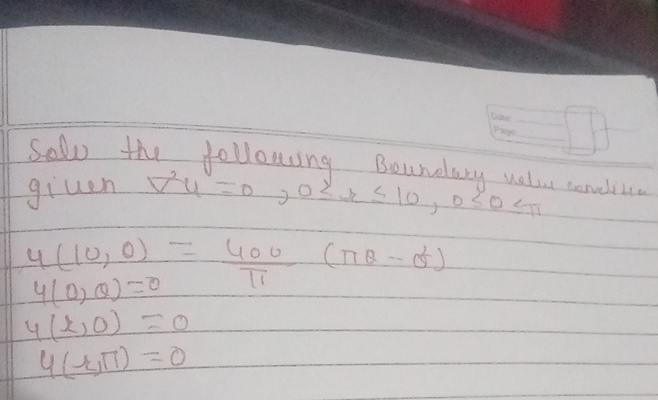 Date:
Page:
Solv the following Boundary value condition
given ∇²u = 0 , 0 ≤ r ≤ 10 , 0 ≤ θ ≤ π
u(10, θ) = 400/π (πθ - θ²)
u(0, θ) = 0
u(r, 0) = 0
u(r, π) = 0